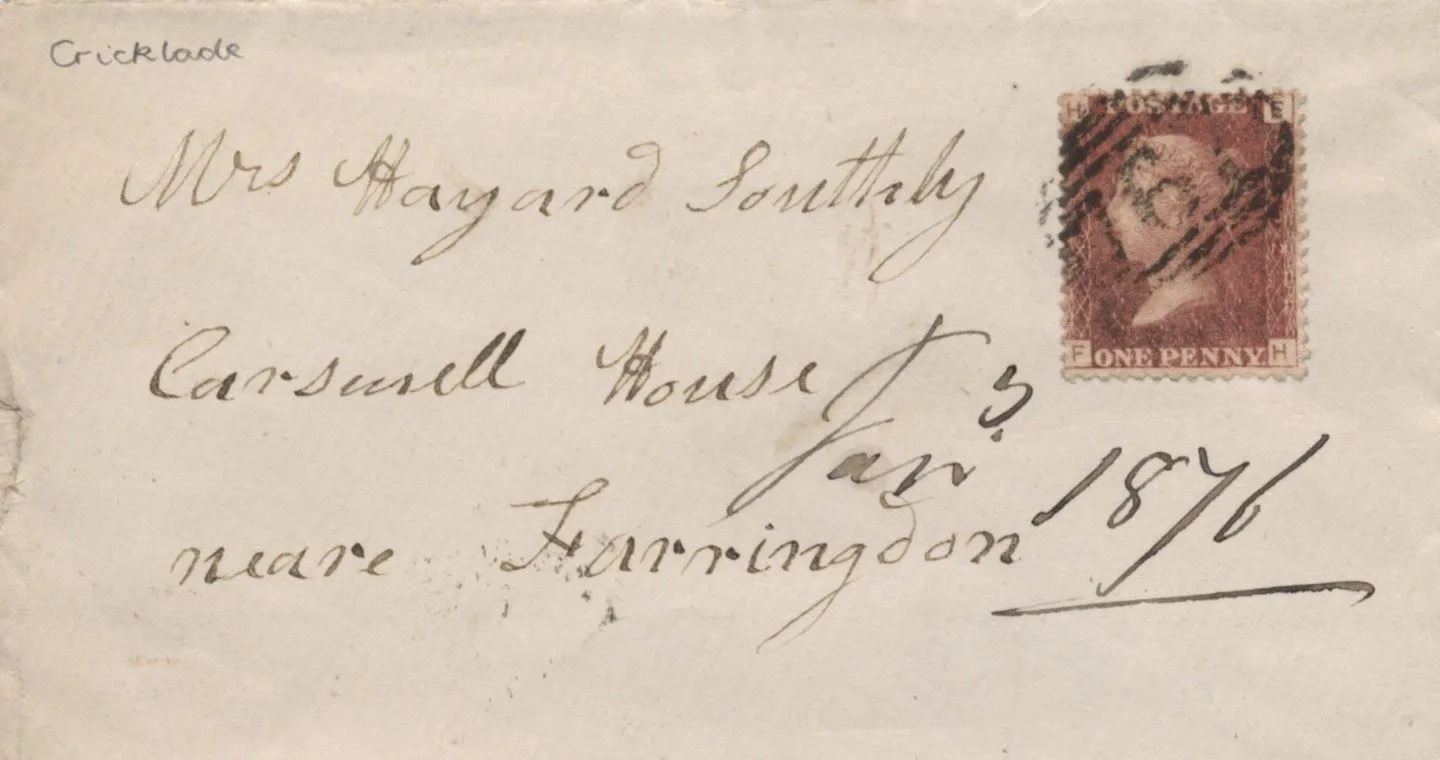 Cricklade
H POSTAGE E
Mrs Hayard Southby
Carswell House
F ONE PENNY H
Jan 3
1876
neare Farringdon